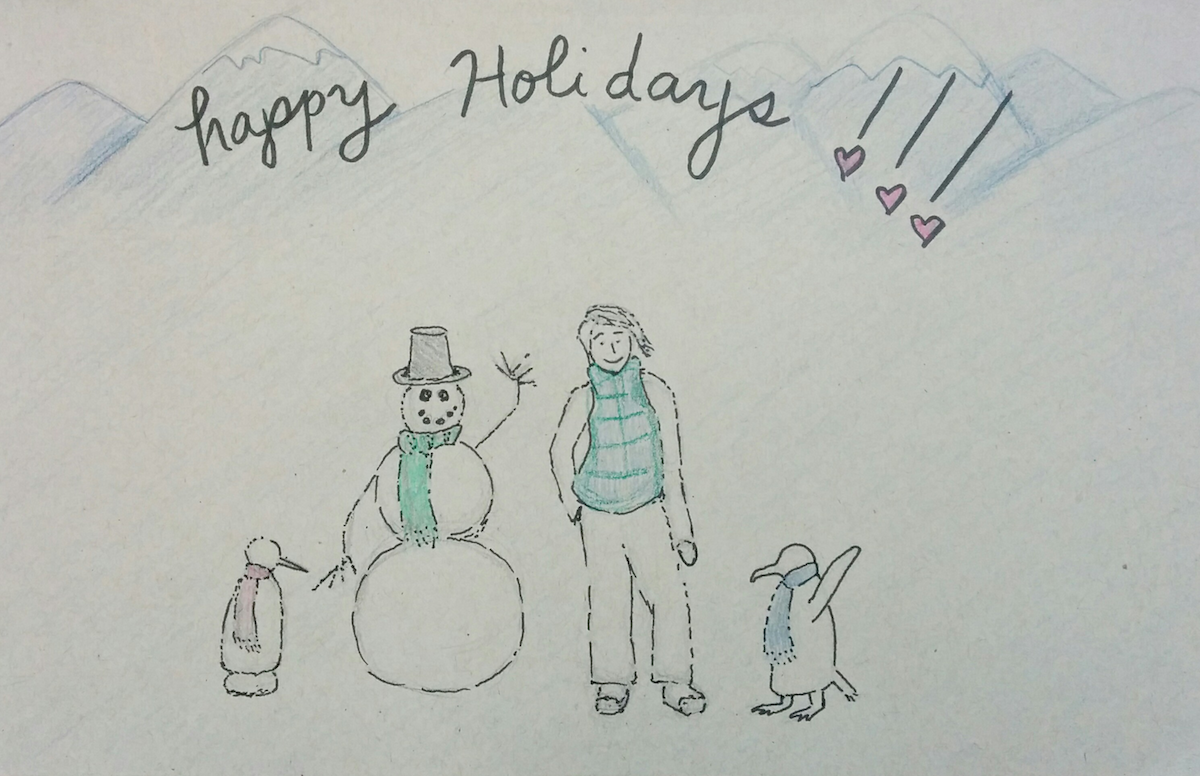 happy Holidays!!!